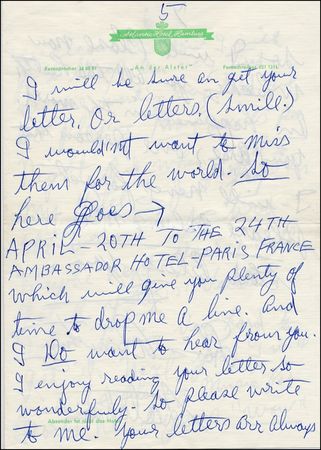 5
Atlantic Hotel Hamburg
Fernsprecher 24 80 01 "An der Alster" Fernschreiber 021 1297
I will be sure an get your
letter. Or letters, (smile.)
I wouldn't want to miss
them for the world. So
here goes →
APRIL - 20TH TO THE 24TH
AMBASSADOR HOTEL - PARIS FRANCE
which will give you plenty of
time to drop me a line. And
I Do want to hear from you.
I enjoy reading your letter so
wonderfuly - so please write
Absender ist nicht das
to me. your letters Arr Always